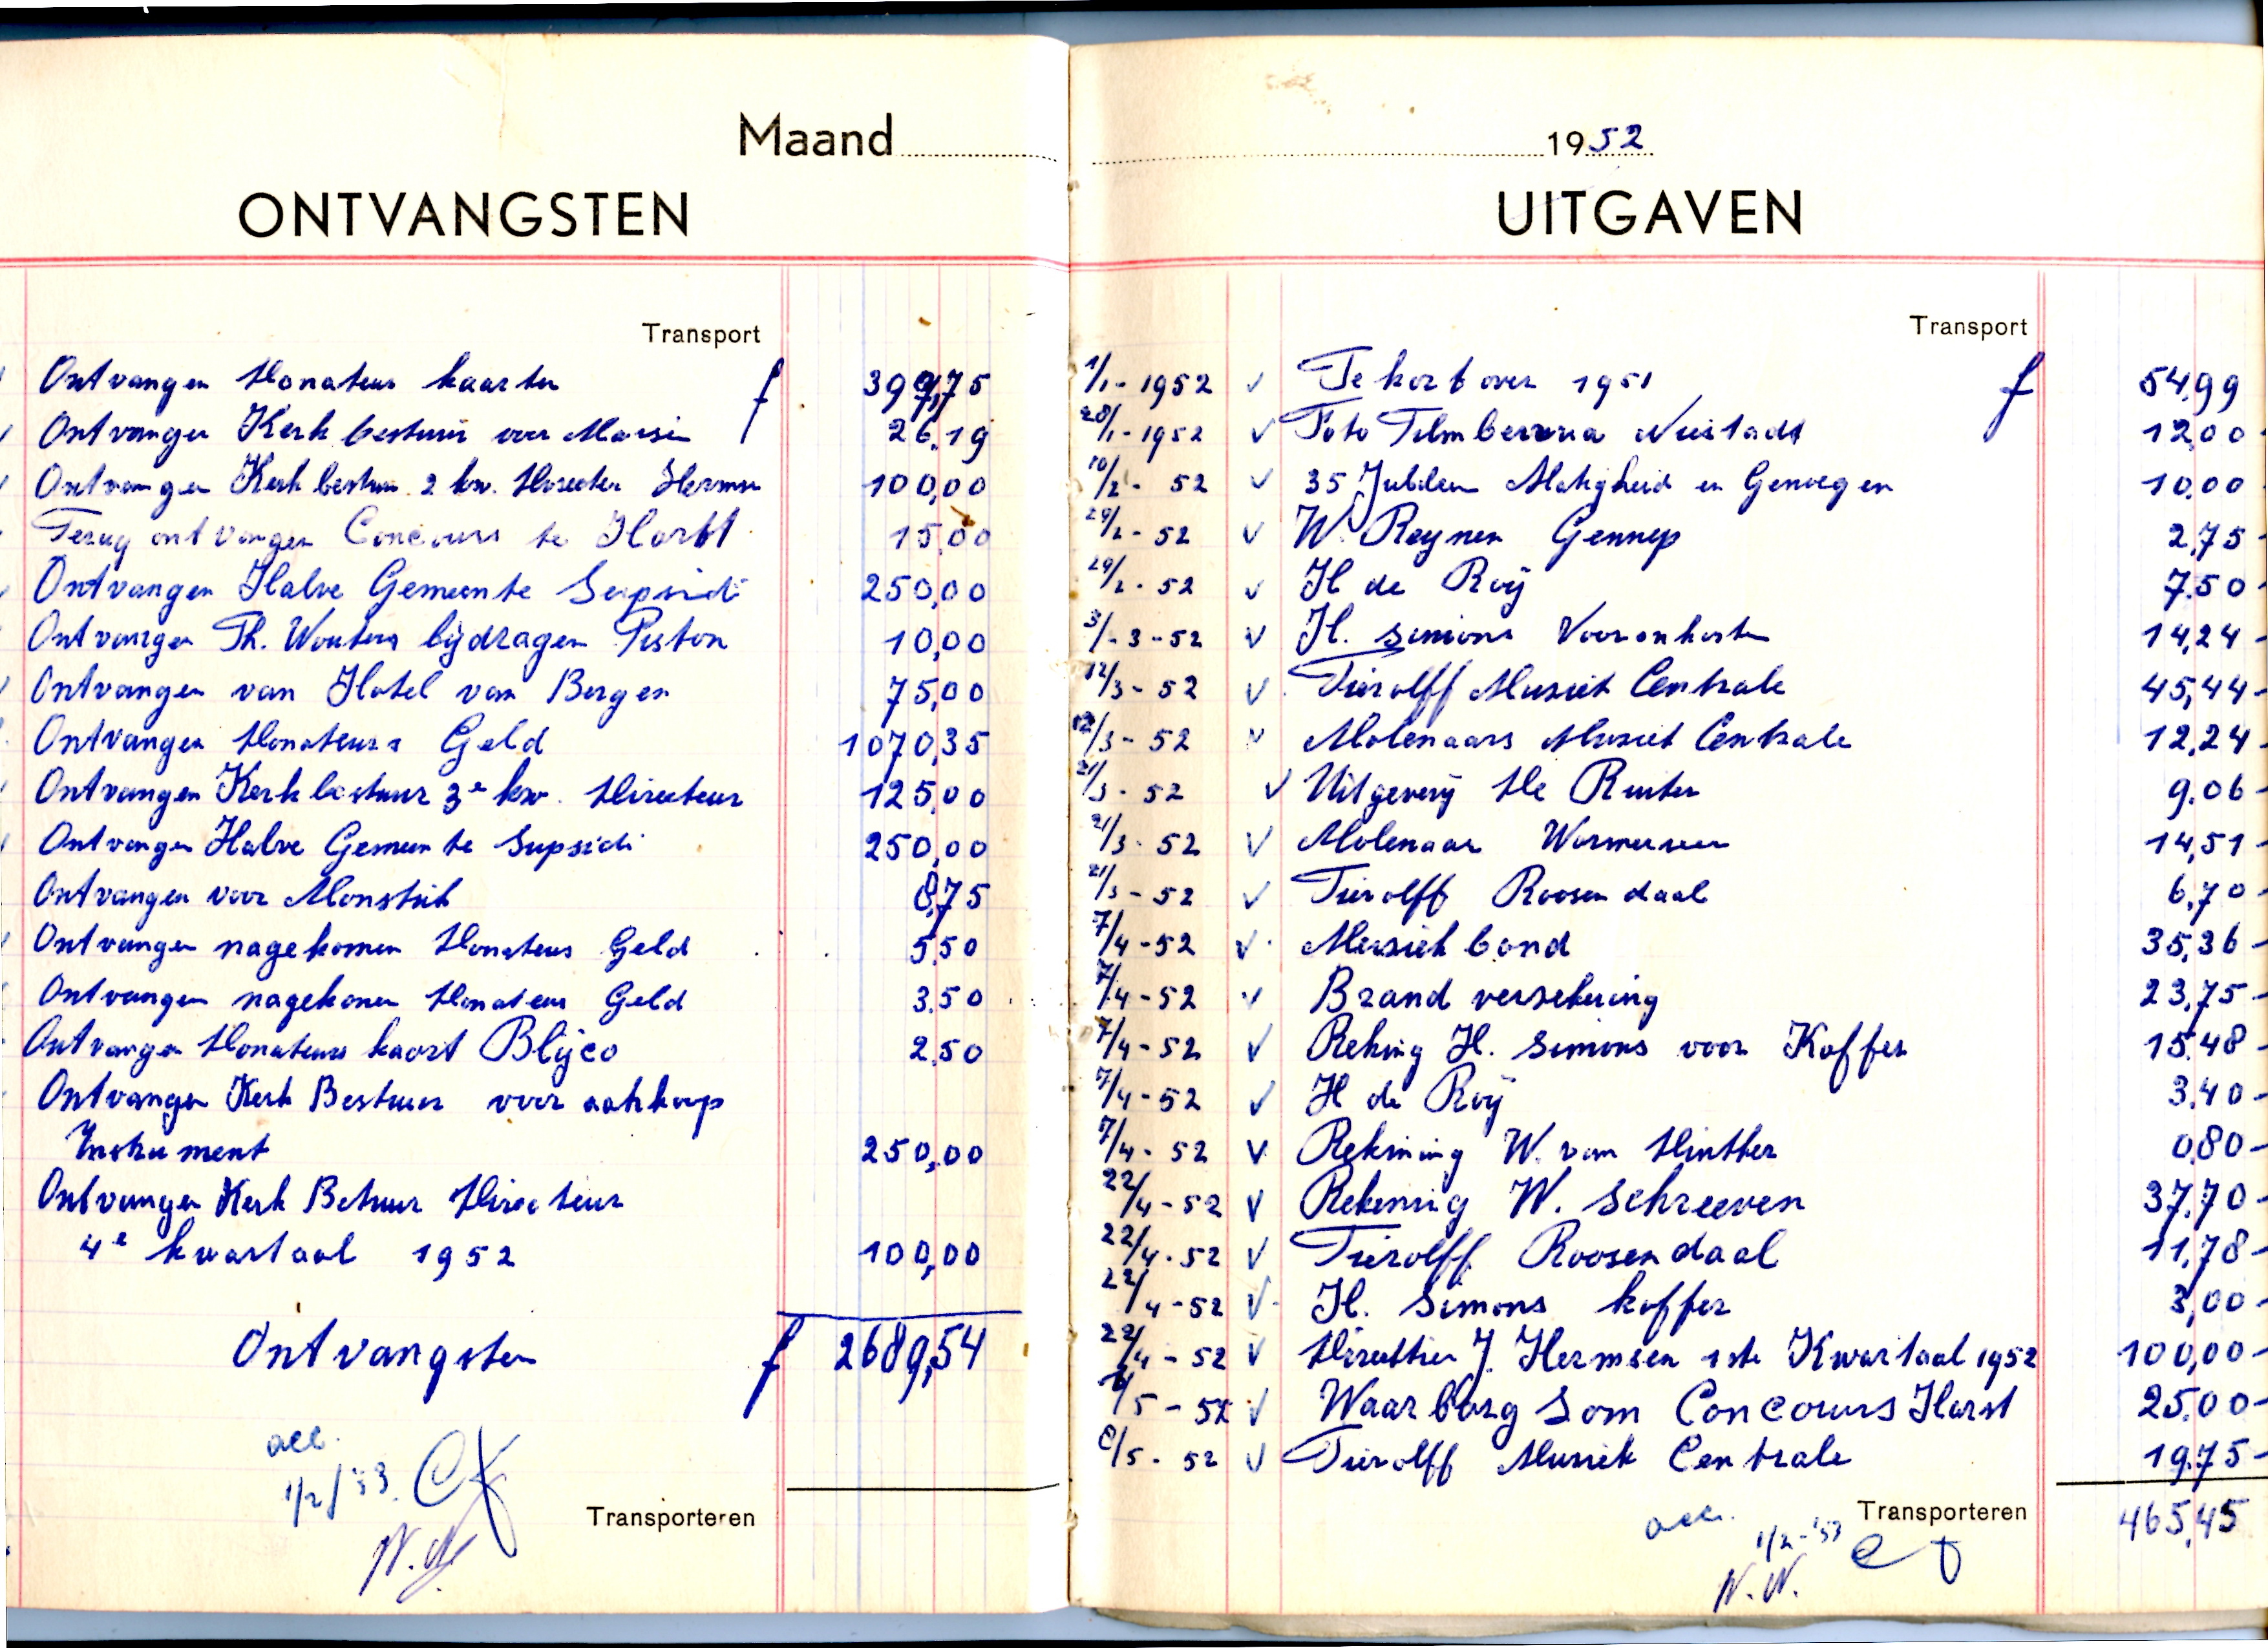 Maand
ONTVANGSTEN
Transport
Ontvangen Donateurs kaarten f 397,75
Ontvangen Kerk bestuur voor Marsen 26,19
Ontvangen Kerk bestuur 2 kw. Directeur Hermsen 100,00
Terug ontvangen Concours te Horst 15,00
Ontvangen Halve Gemeente Supsidi 250,00
Ontvangen Th. Wouters bijdragen Piston 10,00
Ontvangen van Hotel van Bergen 75,00
Ontvangen Donateurs Geld 1070,35
Ontvangen Kerk bestuur 3e kw. Directeur 125,00
Ontvangen Halve Gemeente Supsidi 250,00
Ontvangen voor 8,75
Ontvangen nagekomen Donateurs Geld 5.50
Ontvangen nagekomen Donateurs Geld 3.50
Ontvangen Donateurs kaart Blijco 2.50
Ontvangen Kerk Bestuur voor
Instrument 250,00
Ontvangen Kerk Betuur Directeur
4e kwartaal 1952 100,00
Ontvangsten f 2689,54
acc.
1/2/53.
Transporteren
1952
UITGAVEN
Transport
1/1-1952 √ Te kort over 1951 f 54,99
28/1-1952 √ Foto 12,00
10/2- 52 √ 35 Jubileum Matigheid en Genoegen 10.00
29/2-52 √ W. Reynen Gennep 2,75
29/2-52 √ H de Roij 7.50
3/-3-52 √ H. Simons Vooronkosten 14,24
12/3-52 √ Tierolff Musiek Centrale 45,44
12/3-52 √ Molenaars Musiek Centrale 12,24
21/3-52 √ Uitgeverij De Ruiter 9.06
21/3-52 √ Molenaar Wormerveer 14,51
21/3-52 √ Tierolff Roosendaal 6,70
7/4-52 √ Musiekbond 35,36
7/4-52 √ Brand versekering 23,75
7/4-52 √ Reking H. Simons voor Koffer 15.48
7/4-52 √ H de Roij 3.40
7/4-52 √ Rekining W. van Dinther 0.80
22/4-52 √ Rekening W. Schreeven 37.70
22/4-52 √ Tierolff Roosendaal 11,78
22/4-52 √ H. Simons koffer 3,00
22/4-52 √ J. Hermsen 1ste Kwartaal 1952 100,00
/5-52 √ Waarborg Som Concours Horst 25.00
8/5-52 √ Tierolff Musiek Centrale 19.75
Transporteren 465,45
acc. 1/2-'53
N.W.